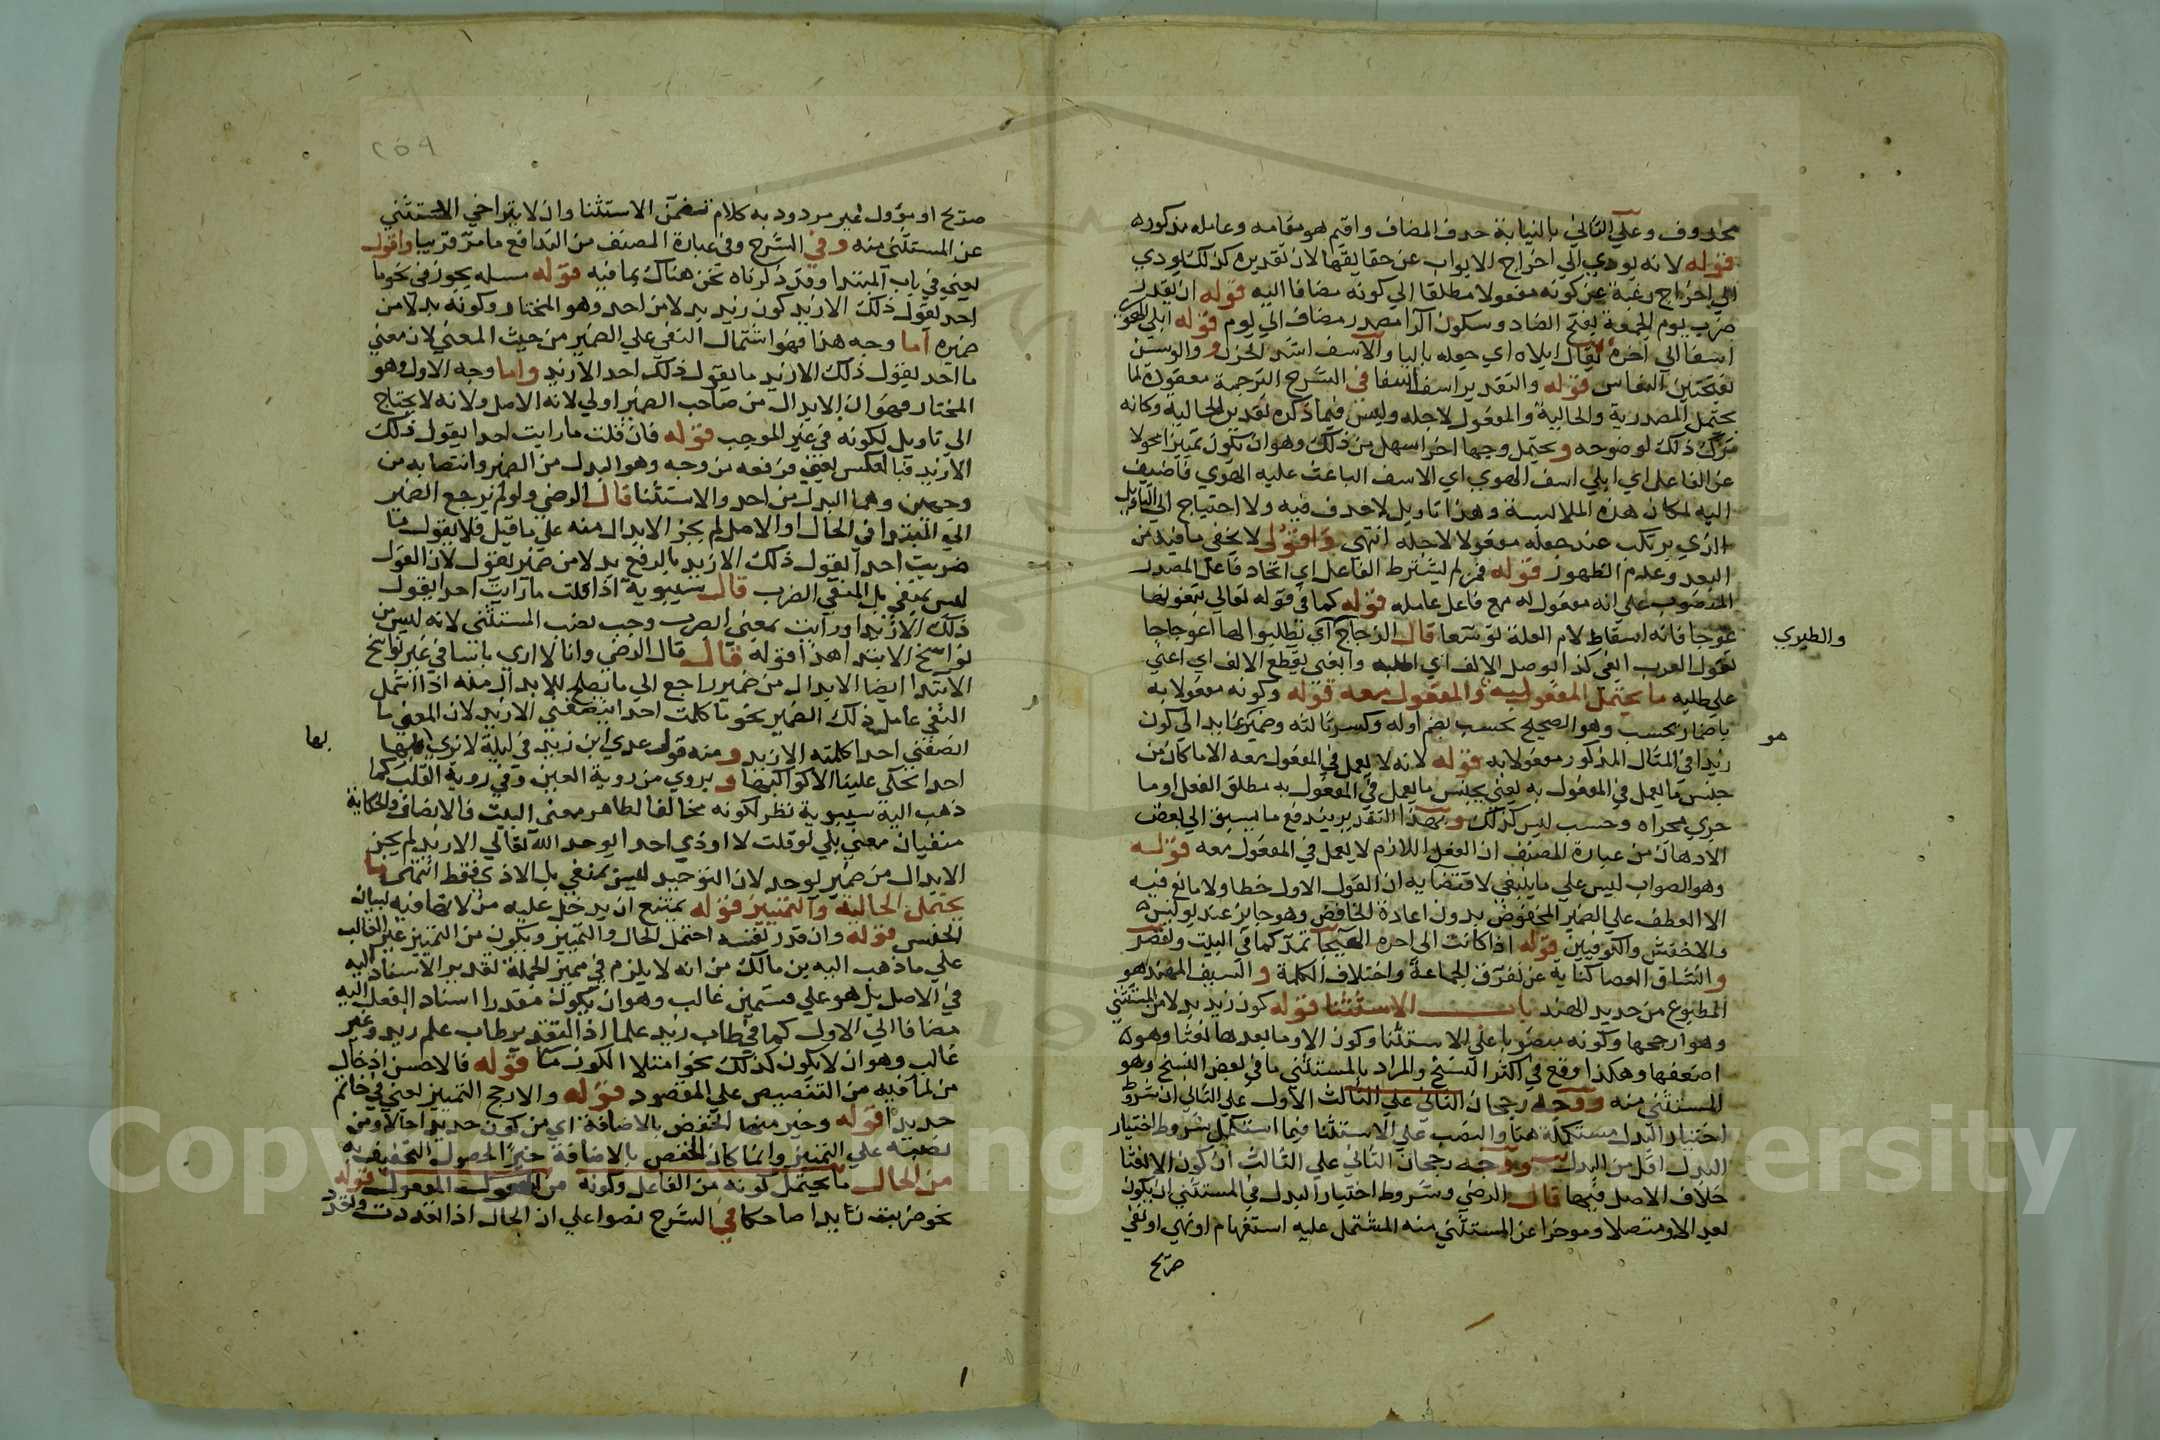 محذوف وعلى الثاني بالنيابة حذف المضاف واقيم هو مقامه وعامله مذكوره
قوله لانه يودي الي اخراج الابواب عن حقايقها لان تقديره كذلك يودي
الي اخراج رغبة عن كونه مفعولا مطلقا الي كونه مضافا اليه قوله ان تقدر
ضرب يوم الجمعة بفتح الضاد وسكون الرا مصدر مضاف الي يوم قوله ابلي الهوي
اسفا الي اخره يقال ابلاه اي جعله باليا والاسف اشد الحزن والوسن
بفتحتين النعاس قوله والتقدير اسف اسفا في الشرح الترجمة معقودة لما
يحتمل المصدرية والحالية والمفعول لاجله وليس فيما ذكره تقدير الحالية وكانه
ترك ذلك لوضوحه ويحتمل وجها اخر اسهل من ذلك وهو ان تكون تمييزا محولا
عن الفاعل اي ابلي اسف الهوي اي الاسف الباعث عليه الهوي فاضيف
اليه لمكان هذه الملابسة وهذا تاويل لا حذف فيه ولا احتياج الي التاويل
الذي يرتكب عند جعله مفعولا لاجله انتهي واقول لا يخفي ما فيه من
البعد وعدم الظهور قوله فمن لم يشترط الفاعل اي اتحاد فاعل المصدر
المنصوب علي انه مفعول له مع فاعل عامله قوله كما في قوله تعالي تبغونها
عوجا فانه اسقاط لام العلة توسعا قال الزجاج اي تطلبوا لها اعوجاجا
والطيري
تقول العرب ابغي كذا بوصل الالف اي اطلبه وابغني بقطع الالف اي اعني
علي طلبه ما يحتمل المفعولية والمفعول معه قوله وكونه مفعولا به
باضمار يحسب وهو الصحيح يحسب بضم اوله وكسر ثالثه وضمير عايد الي كون
هو
زيدا في المثال المذكور مفعولا به قوله لانه لا يعمل في المفعول معه الا ما كان من
جنس ما يعمل في المفعول به يعني بجنس ما يعمل في المفعول به مطلق الفعل او ما
جري مجراه وحسب ليس كذلك وبهذا التقدير يندفع ما يسبق الي بعض
الاذهان من عبارة المصنف ان الفعل اللازم لا يعمل في المفعول معه قوله
وهو الصواب ليس علي ما ينبغي لاقتضايه ان القول الاول خطا ولا مانع فيه
الا العطف علي الضمير المخفوض بدون اعادة الخافض وهو جايز عند يونس
والاخفش والكوفيين قوله اذا كانت الي اخره الهيجا تمد كما في البيت وتقصر
وانشاق العصا كناية عن تفرق الجماعة واختلاف الكلمة والسيف المهند هو
المطبوع من حديد الهند باب الاستثنا قوله كون زيد بدلا من المستثني
وهو ارجحها وكونه منصوبا علي الاستثنا وكون الا وما بعدها نعتا وهو
اضعفها وهكذا وقع في اكثر النسخ والمراد بالمستثني ما في بعض النسخ وهو
المستثني منه ووجه رجحان الثاني علي الثالث الاول علي الثاني ان شروط
اختيار البدل مستكملة هنا والنصب علي الاستثنا فيما استكمل شروط اختيار
البدل اقل من البدل ووجه رجحان الثاني علي الثالث ان كون الا نعتا
خلاف الاصل فيها قال الرضي وشروط اختيار البدل في المستثني ان يكون
بعد الا ومتصلا وموخرا عن المستثني منه المشتمل عليه استفهام او نهي او نفي
صريح
٢٥٩
صريح او مؤول غير مردود به كلام تضمن الاستثنا وان لا يتراخي المستثني
عن المستثني منه وفي الشرح وفي عبارة المصنف من التدافع ما مر قريبا واقول
يعني في باب المبتدا وقد ذكرناه نحن هناك بما فيه قوله مسله يجوز في نحو ما
احد يقول ذلك الا زيد كون زيد بدلا من احد وهو المختار وكونه بدلا من
ضميره اما وجه هذا فهو اشتمال النفي علي الضمير من حيث المعني لان معني
ما احد يقول ذلك الا زيد ما يقول ذلك احد الا زيد واما وجه الاول وهو
المختار فهو ان الابدال من صاحب الضمير اولي لانه الاصل ولانه لا يحتاج
الي تاويل لكونه في غير الموجب قوله فان قلت ما رايت احدا يقول ذلك
الا زيد فبالعكس يعني فرفعه من وجه وهو البدل من الضمير وانتصابه من
وجهين وهما البدل من احد والاستثنا قال الرضي ولو لم يرجع الضمير
الي المبتدا في الحال او الاصل لم يجز الابدال منه علي ما قيل فلا يقول ما
ضربت احدا يقول ذلك الا زيد بالرفع بدلا من ضمير يقول لان القول
ليس بمنفي بل المنفي الضرب قال سيبويه اذا قلت ما رايت احدا يقول
ذلك الا زيدا ورايت بمعني ابصرت وجب نصب المستثني لانه ليس من
نواسخ الابتدا هذا قوله قال قال الرضي وانا لا اري باسا في غير نواسخ
الابتدا ايضا الابدال من ضمير راجع الي ما يصلح للابدال منه اذا اشتمل
النفي عامل ذلك الضمير نحو ما كلمت احدا ينصفني الا زيد لان المعني ما
انصفني احد كلمته الا زيد ومنه قول عدي ابن زيد في ليلة لا نري بها
بها
احدا يحكي علينا الا كواكبها ويروي من روية العين وفي روية القلب كما
ذهب اليه سيبويه نظر لكونه مخالفا لظاهر معني البيت فالانصاف والحكاية
منفيان معني بلي لو قلت لا اوذي احدا يوحد الله تعالي الا زيد لم يجز
الابدال من ضمير يوحد لان التوحيد ليس بمنفي بل الاذي فقط انتهي ما
يحتمل الحالية والتمييز قوله يمتنع ان يدخل عليه من لانها فيه لبيان
الجنس قوله وان قدر نفسه احتمل الحال والتمييز ويكون من التمييز غير الغالب
علي ما ذهب اليه بن مالك من انه لا يلزم في مميز الجملة تقدير الاسناد اليه
في الاصل بل هو علي قسمين غالب وهو ان يكون مقدرا اسناد الفعل اليه
مضافا الي الاول كما في طاب زيد علما اذ التقدير طاب علم زيد وغير
غالب وهو ان لا يكون كذلك نحو امتلا الكوز ما قوله فالاحسن ادخال
من لما فيه من التنصيص علي المقصود قوله والارجح التمييز يعني في خاتم
حديدا قوله وخير منهما الخفض بالاضافة اي من كون حديدا حالا ومن
نصبه علي التمييز وانما كان الخفض بالاضافة خيرا لحصول التخفيف به
من الحال ما يحتمل كونه من الفاعل وكونه من المفعول قوله
نحو ضربت زيدا ضاحكا في الشرح نصوا علي ان الحال اذا تعددت وتعدد